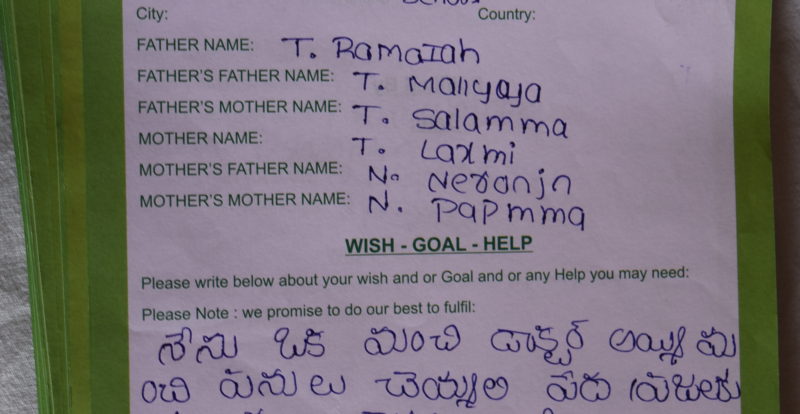 City: Country:
FATHER NAME: T. Ramaiah
FATHER'S FATHER NAME: T. Mallyaya
FATHER'S MOTHER NAME: T. Salamma
MOTHER NAME: T. Laxmi
MOTHER'S FATHER NAME: N. Neranjn
MOTHER'S MOTHER NAME: N. Papmma
WISH - GOAL - HELP
Please write below about your wish and or Goal and or any Help you may need:
Please Note : we promise to do our best to fulfil:
నేను ఒక మంచి డాక్టర్ అయ్యి మ
ంచి పనులు చెయ్యాలి పేద ప్రజలకు